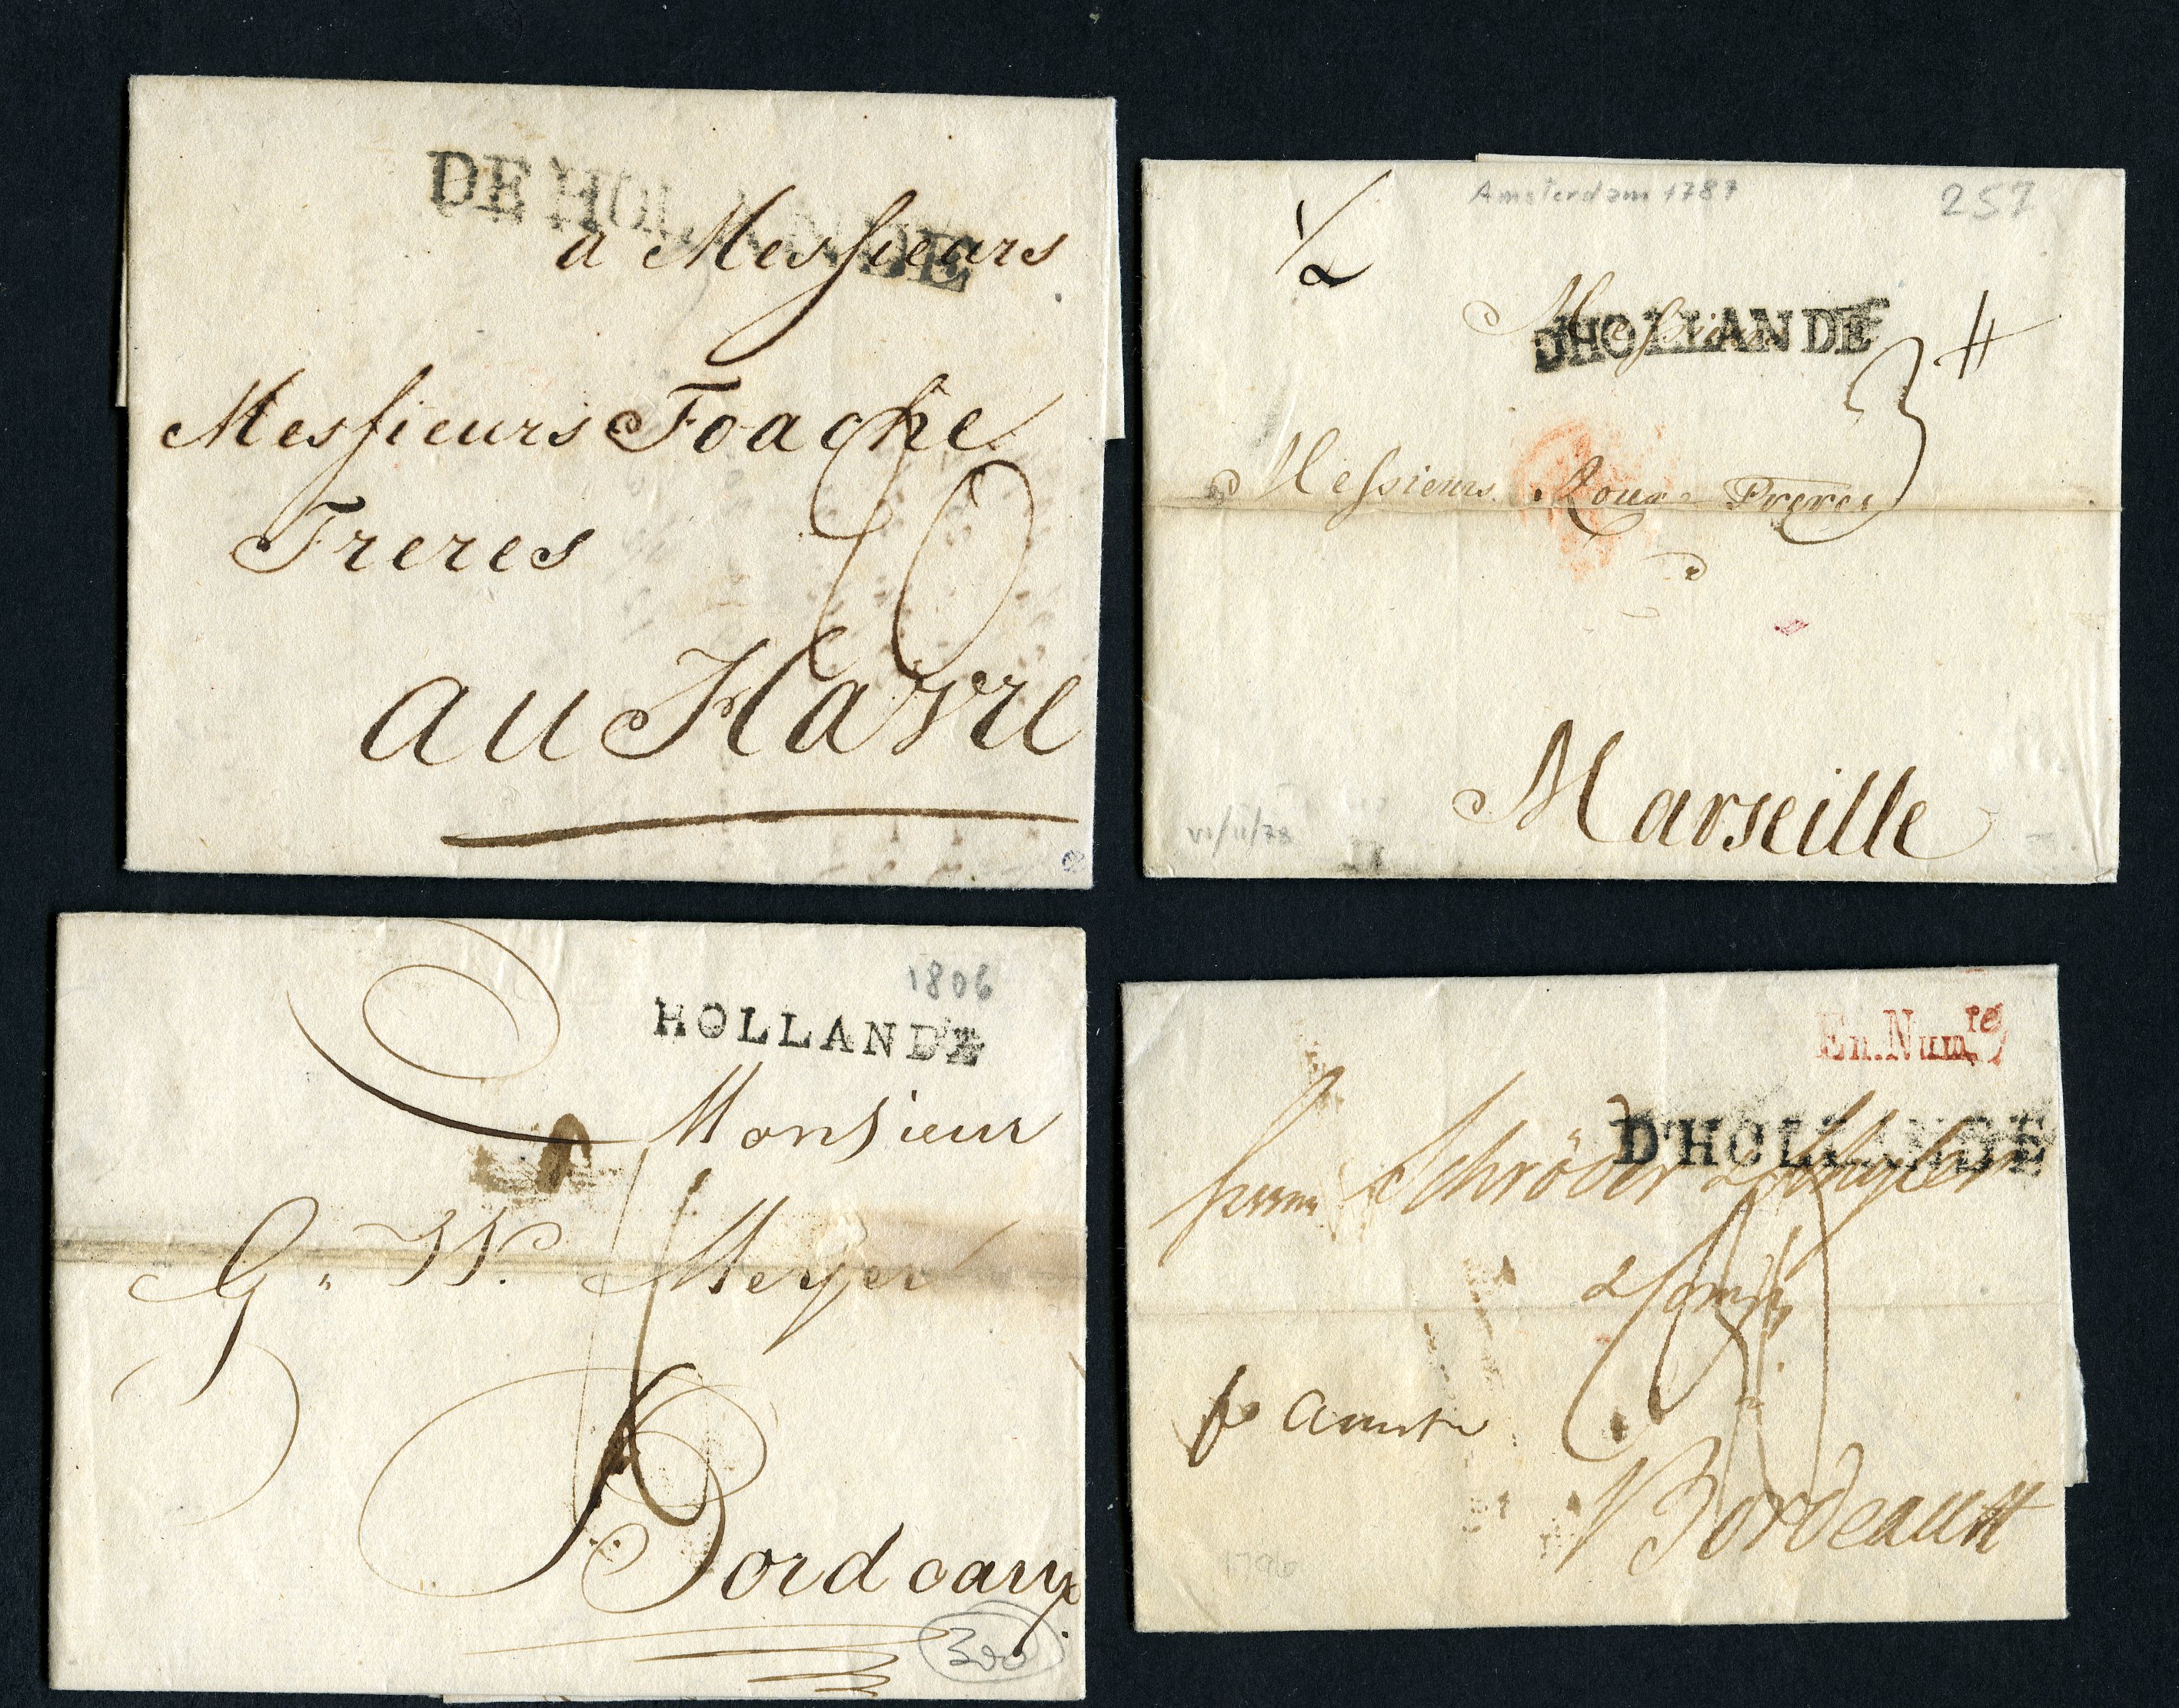 DE HOLLANDE
a Messieurs
Messieurs Foache
Freres
10
au Havre
Amsterdam 1787
257
1/2
DHOLLANDE
3 #
Messieurs Roux Freres
Marseille
1806
HOLLANDE
Monsieur
G. W. Meyer
Bordeaux
300
En.Num.re
D'HOLLANDE
Herrn Schröder & Schyler
& Comp.
Bordeaux
1796